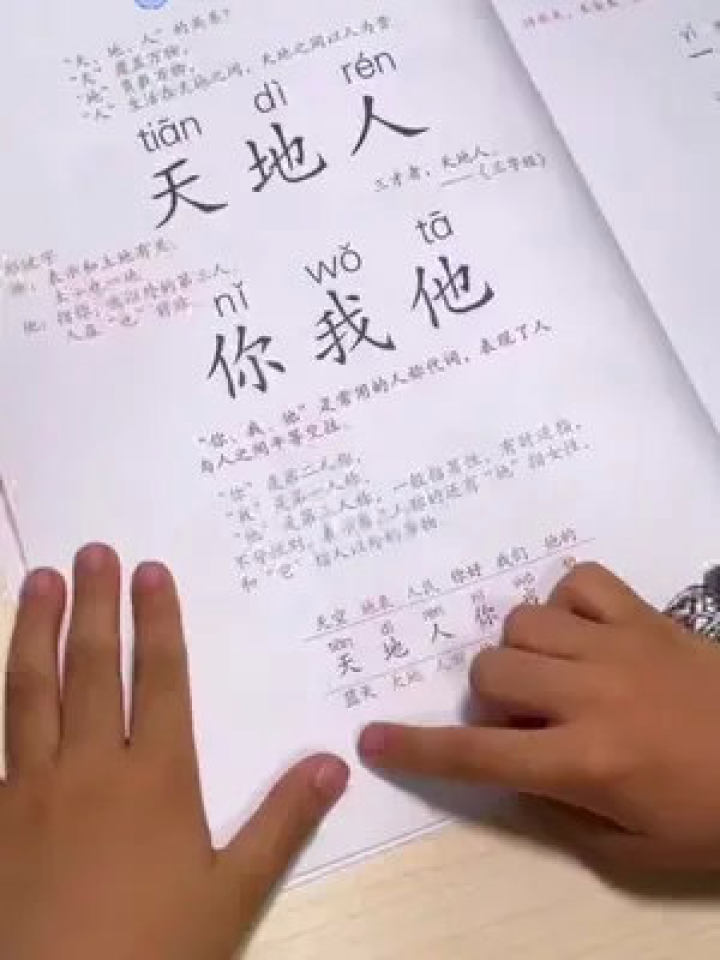 "天、地、人"的关系?
"天"覆盖万物,
"地"负载万物,
"人"生活在天地之间,天地之间以人为贵
tiān dì rén
天地人
三才者,天地人。
——《三字经》
地:表示和土地有关,
他:指你、我以外的第三人,
nǐ wǒ tā
你我他
"你、我、他"是常用的人称代词,表现了人
与人之间平等交往。
"你"是第二人称,
"我"是第一人称,
"他"是第三人称,一般指男性,有时泛指,
不分性别,表示第三人称的还有"她"指女性,
和"它"指人以外的事物
天空 地表 人民 你好 我们 他的
tiān dì rén nǐ wǒ
天 地 人 你
蓝天 大地
yī